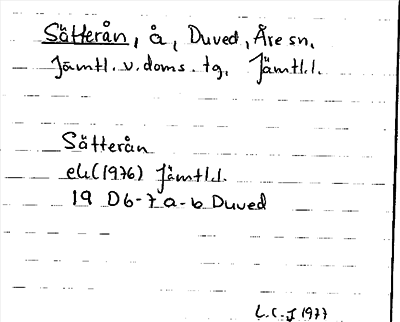 Sätterån, å, Duved, Åre sn.
Jämtl. v. doms. tg. Jämtl.l.
Sätterån
ek (1976) Jämtl.l.
19 D6-7 a-b Duved
L.C-J 1977